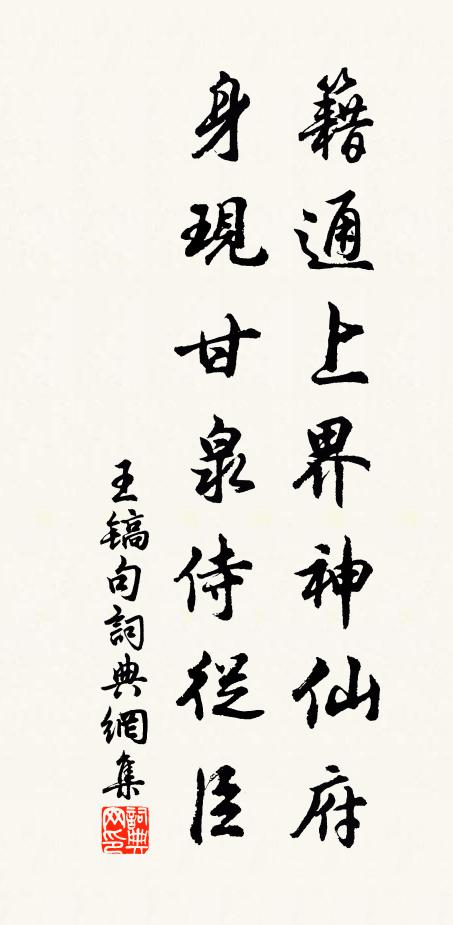 籍通上界神仙府
身現甘泉侍從臣
王镐句詞典網集
詞典网印